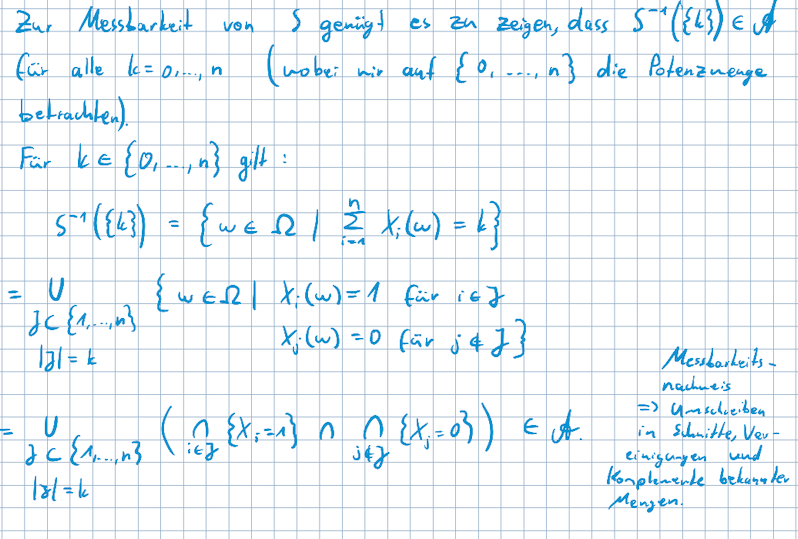 Zur Messbarkeit von S genügt es zu zeigen, dass S⁻¹({k}) ∈ 𝒜
für alle k = 0,...,n (wobei wir auf {0,...,n} die Potenzmenge
betrachten).
Für k ∈ {0,...,n} gilt:
S⁻¹({k}) = {ω ∈ Ω | ∑_{i=1}^{n} X_i(ω) = k}
= ⋃_{J ⊂ {1,...,n}, |J| = k} {ω ∈ Ω | X_i(ω) = 1 für i ∈ J
X_j(ω) = 0 für j ∉ J}
= ⋃_{J ⊂ {1,...,n}, |J| = k} (⋂_{i∈J} {X_i = 1} ∩ ⋂_{j∉J} {X_j = 0}) ∈ 𝒜.
Messbarkeits-
nachweis
=> Umschreiben
in Schnitte, Ver-
einigungen und
Komplemente bekannter
Mengen.